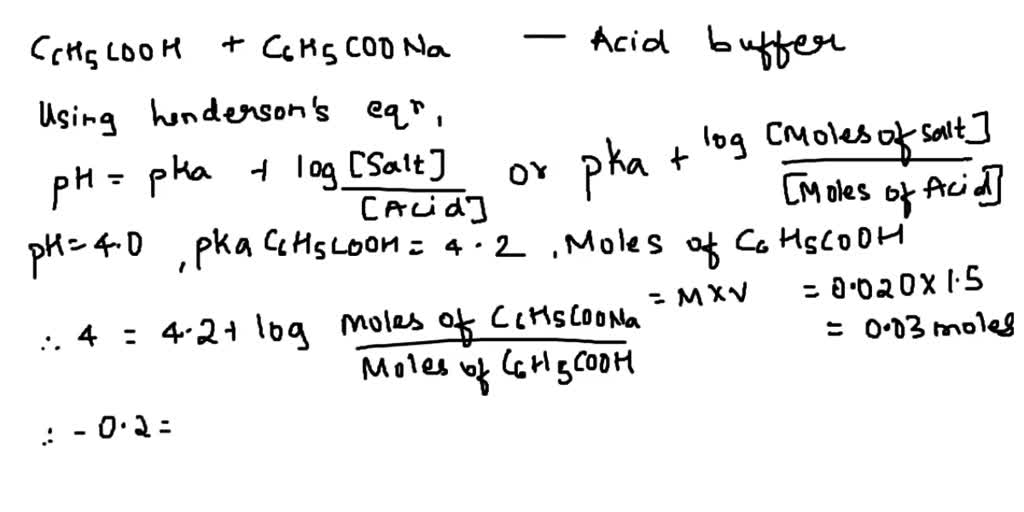 C6H5COOH + C6H5COONa — Acid buffer
Using henderson's eqn,
pH = pKa + log [Salt]/[Acid] or pka + log [Moles of salt]/[Moles of Acid]
pH=4.0, pka C6H5COOH = 4.2, Moles of C6H5COOH
= M×V = 0.020×1.5
= 0.03 moles
∴ 4 = 4.2 + log Moles of C6H5COONa/Moles of C6H5COOH
∴ -0.2 =